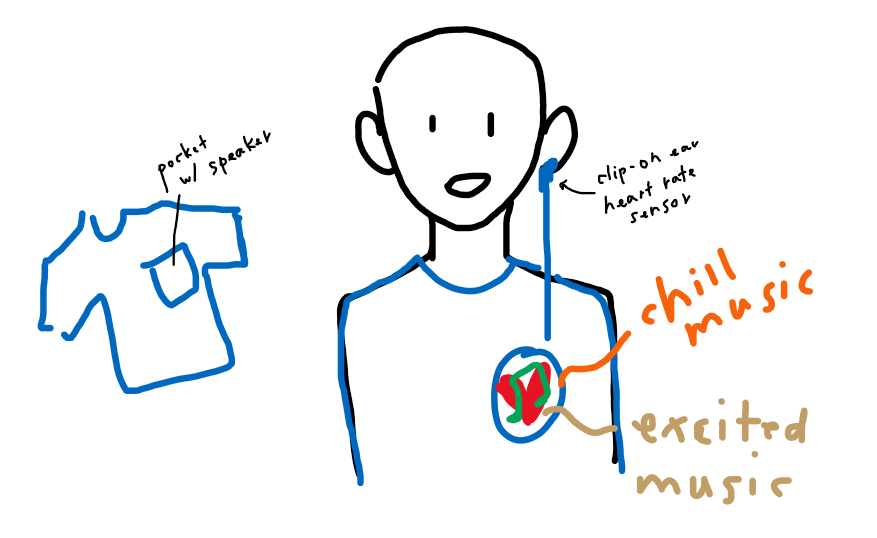 pocket
w/ speaker
clip-on ear
heart rate
sensor
chill
music
excited
music